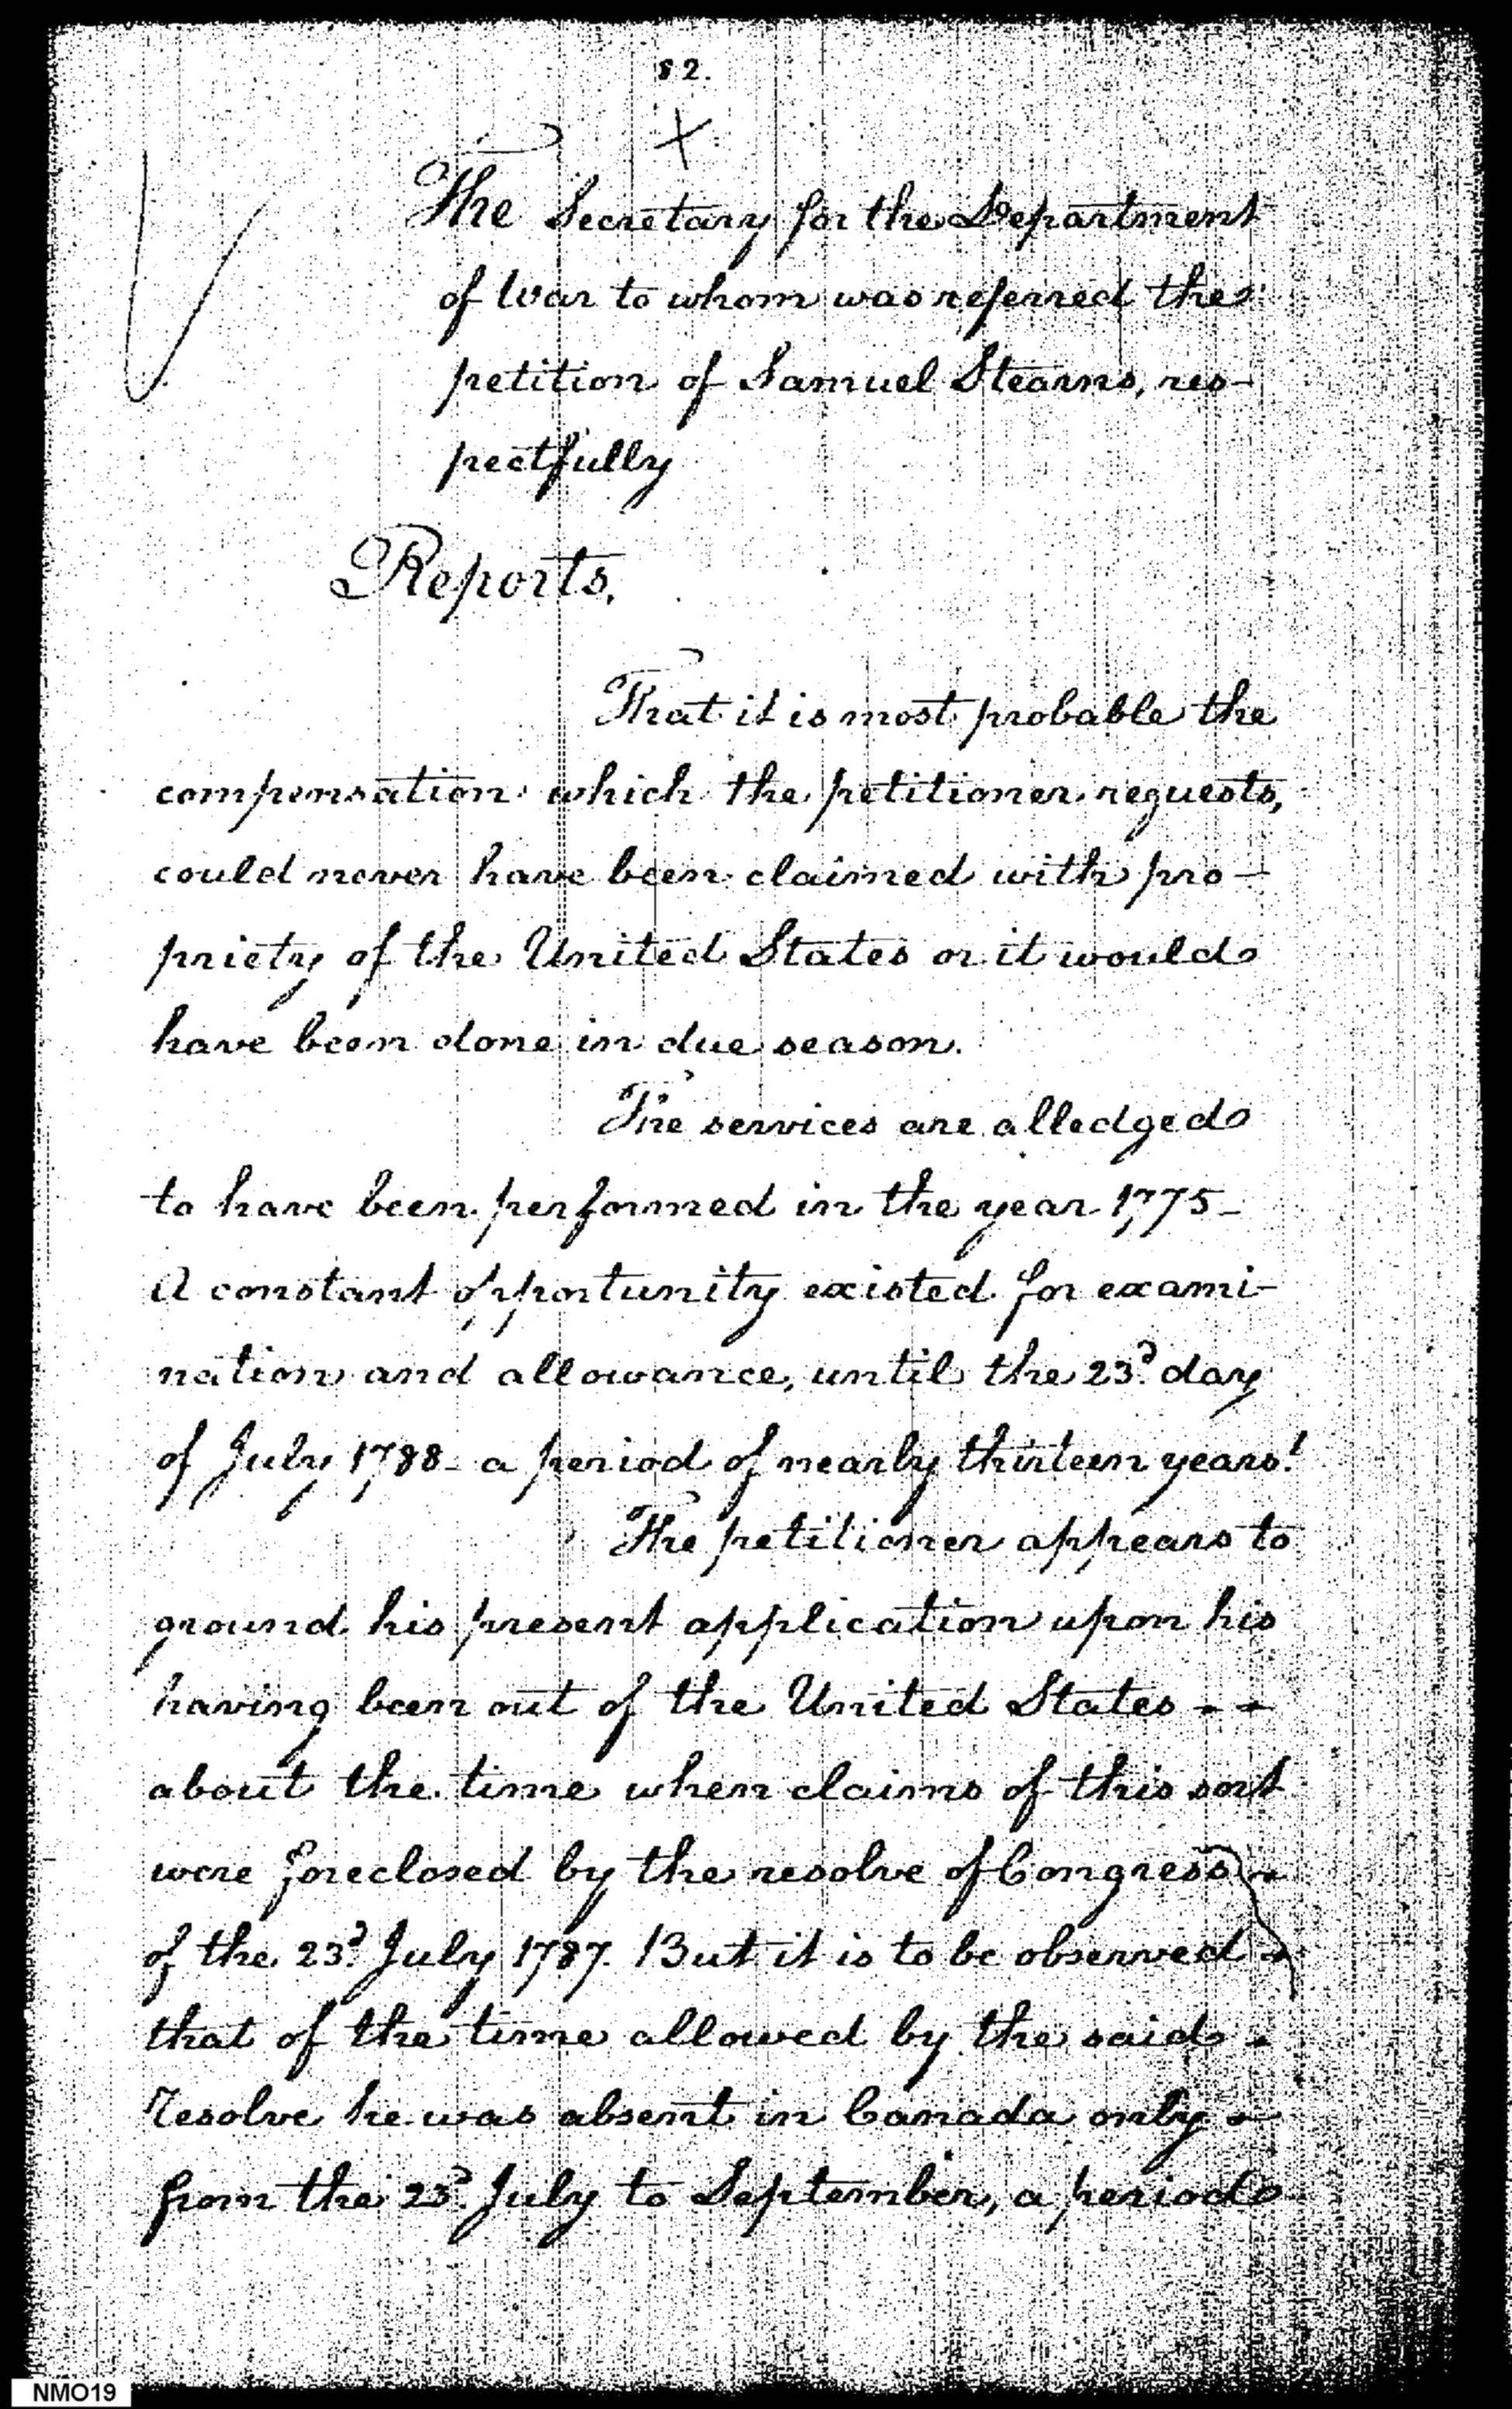 82.
The Secretary for the Department
of War to whom was referred the
petition of Samuel Stearns, res-
pectfully
Reports,
That it is most probable the
compensation which the petitioner requests,
could never have been claimed with pro-
priety of the United States or it would
have been done in due season.
The services are alledged
to have been performed in the year 1775-
A constant opportunity existed for exami-
nation and allowance, until the 23d. day
of July 1788- a period of nearly thirteen years!
The petitioner appears to
ground his present application upon his
having been out of the United States - -
about the time when claims of this sort
were foreclosed by the resolve of Congress
of the 23d. July 1787. But it is to be observed
that of the time allowed by the said
resolve he was absent in Canada only
from the 23d. July to September, a period
NMO19